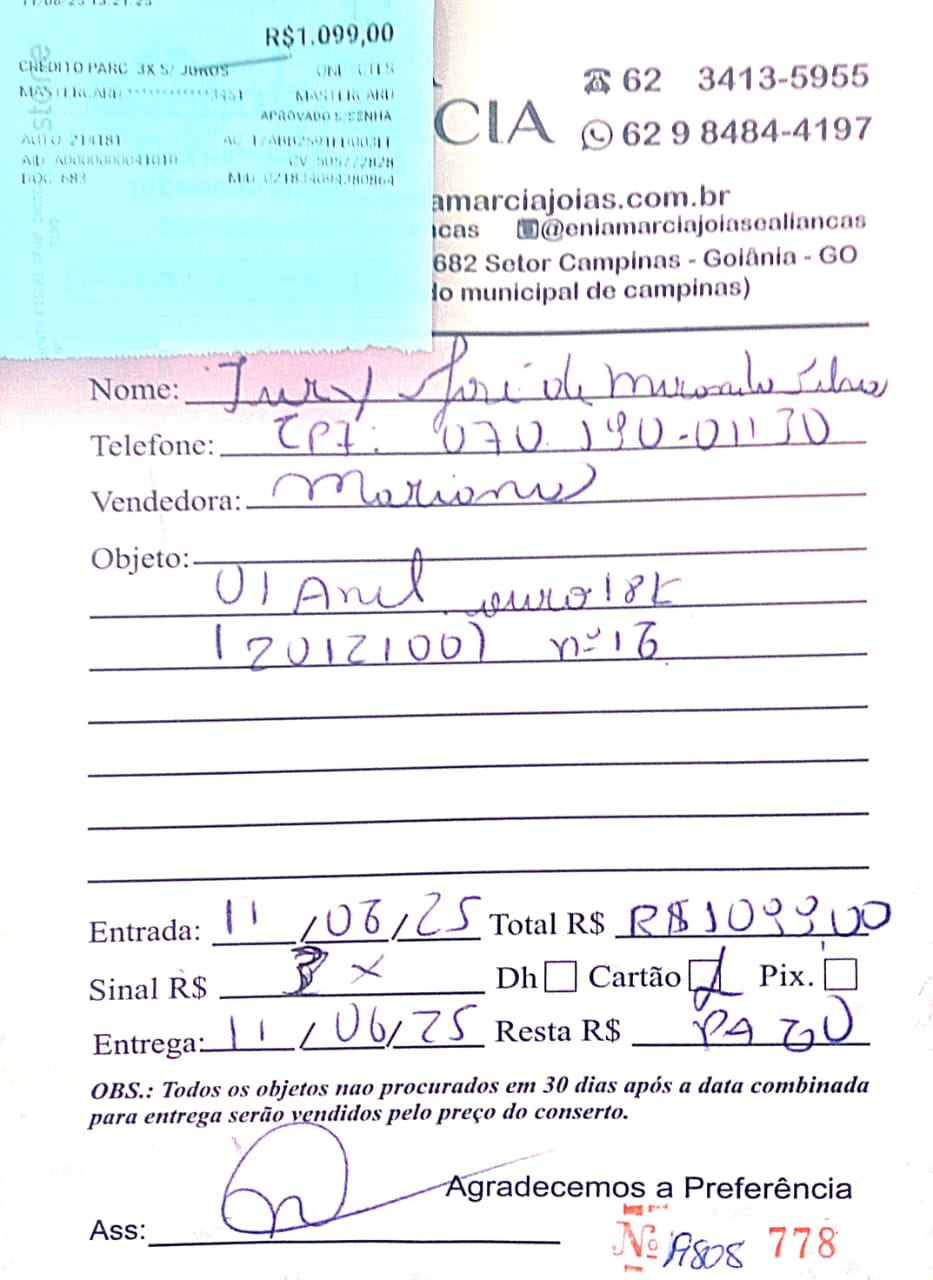 R$1.099,00
CREDITO PARC 3X S/ JUROS
MASTERCARD ************3451 MASTERCARD
APROVADO S/SENHA
AUTO 214181
CV 505772828
AID A0000000041010
DOC 683
stone
CIA
62 3413-5955
62 9 8484-4197
amarciajoias.com.br
ncas @eniamarciajoiasealiancas
682 Setor Campinas - Goiânia - GO
do municipal de campinas)
Nome: Iury José de Silva
Telefone: CPF: 070 190-01130
Vendedora: Mariana
Objeto:
01 Anel ouro 18k
(2012100) nº 16
Entrada: 11/06/25 Total R$ R$1099,00
Sinal R$ 3x Dh Cartão Pix.
Entrega: 11/06/25 Resta R$ PAGO
OBS.: Todos os objetos nao procurados em 30 dias após a data combinada
para entrega serão vendidos pelo preço do conserto.
Agradecemos a Preferência
Ass:
Nº 778